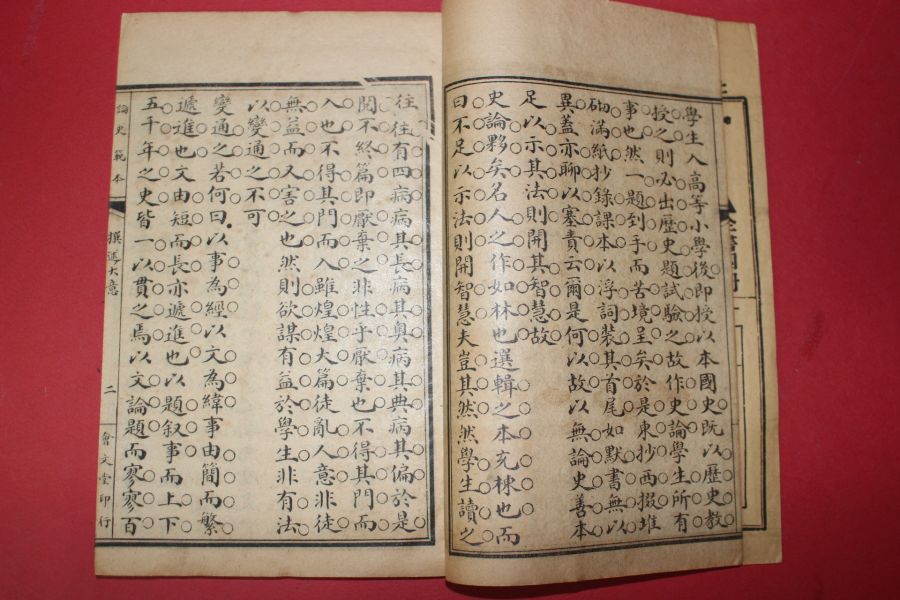 學生入高等小學後即授以本國史既以歷史教
授之則必出歷史題試驗之故作史論學生所有
事也然一題到手而苦境呈矣於是東抄西掇堆
砌滿紙抄錄課本以浮詞裝其首尾如默書無以
異蓋亦聊以塞責云爾是何以故以無論史善本
足以示其法則開其智慧故
史論夥矣名人之作如林也選輯之本充棟也而
曰不足以示法則開智慧夫豈其然然學生讀之
往往有四病病其長病其奧病其典病其偏於是
閱不終篇即厭棄之非性乎厭棄也不得其門而
入也不得其門而入雖煌煌大篇徒亂人意非徒
無益而又害之也然則欲謀有益於學生非有法
以變通之不可
變通之若何曰以事為經以文為緯事由簡而繁
遞進也文由短而長亦遞進也以題叙事而上下
五千年之史皆一以貫之焉以文論題而寥寥百
論史範本
撰述大意
二
會文堂印行